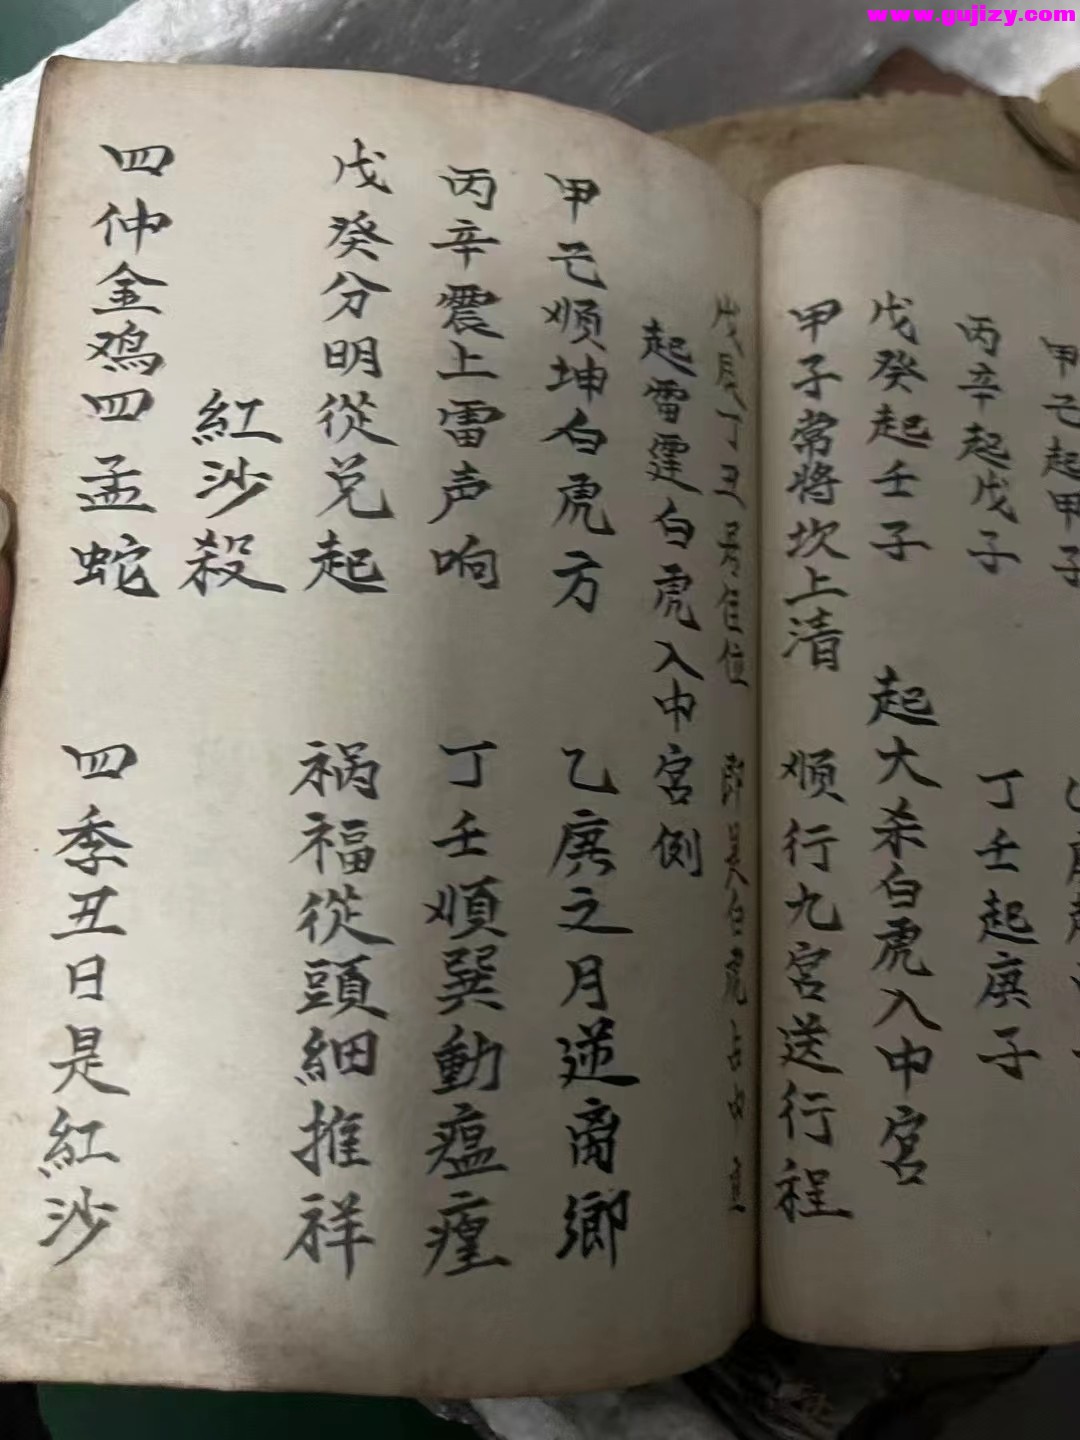 www.gujizy.com
甲己起甲子
丙辛起戊子 丁壬起庚子
戊癸起壬子 起大杀白虎入中宮
甲子常將坎上清 順行九宮送行程
戊辰丁丑 位 白虎占中宮
起雷霆白虎入中宮例
甲己順坤白虎方 乙庚之月逆离鄉
丙辛震上雷声响 丁壬順巽動瘟㾮
戊癸分明從兑起 祸福從頭細推祥
紅沙殺
四仲金鸡四孟蛇 四季丑日是紅沙